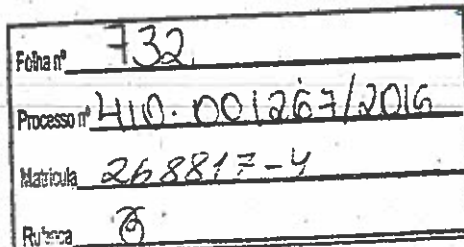 Folha nº 732
Processo nº 410.001267/2016
Matrícula 268817-4
Rubrica